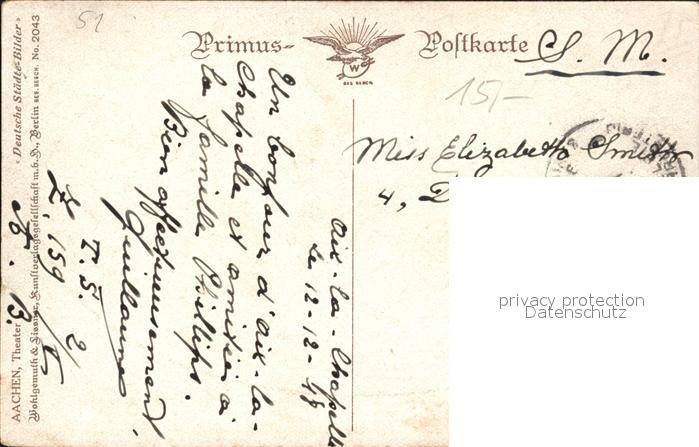 51
Primus- Postkarte
W G
GES. GESCH.
S. M.
15,-
Miss Elizabeth Smith
4, D
Aix-la-Chapelle
Le 12-12-18
Un bonjour d'Aix-la-
Chapelle et amitiés à
la famille Phillips.
Bien affectueusement
Guillaume
T.S. 2
159
A. B.
AACHEN, Theater
Wohlgemuth & Lissner, Kunstverlagsgesellschaft m.b.H., Berlin
"Deutsche Städte-Bilder"
GES. GESCH. No. 2043
privacy protection
Datenschutz